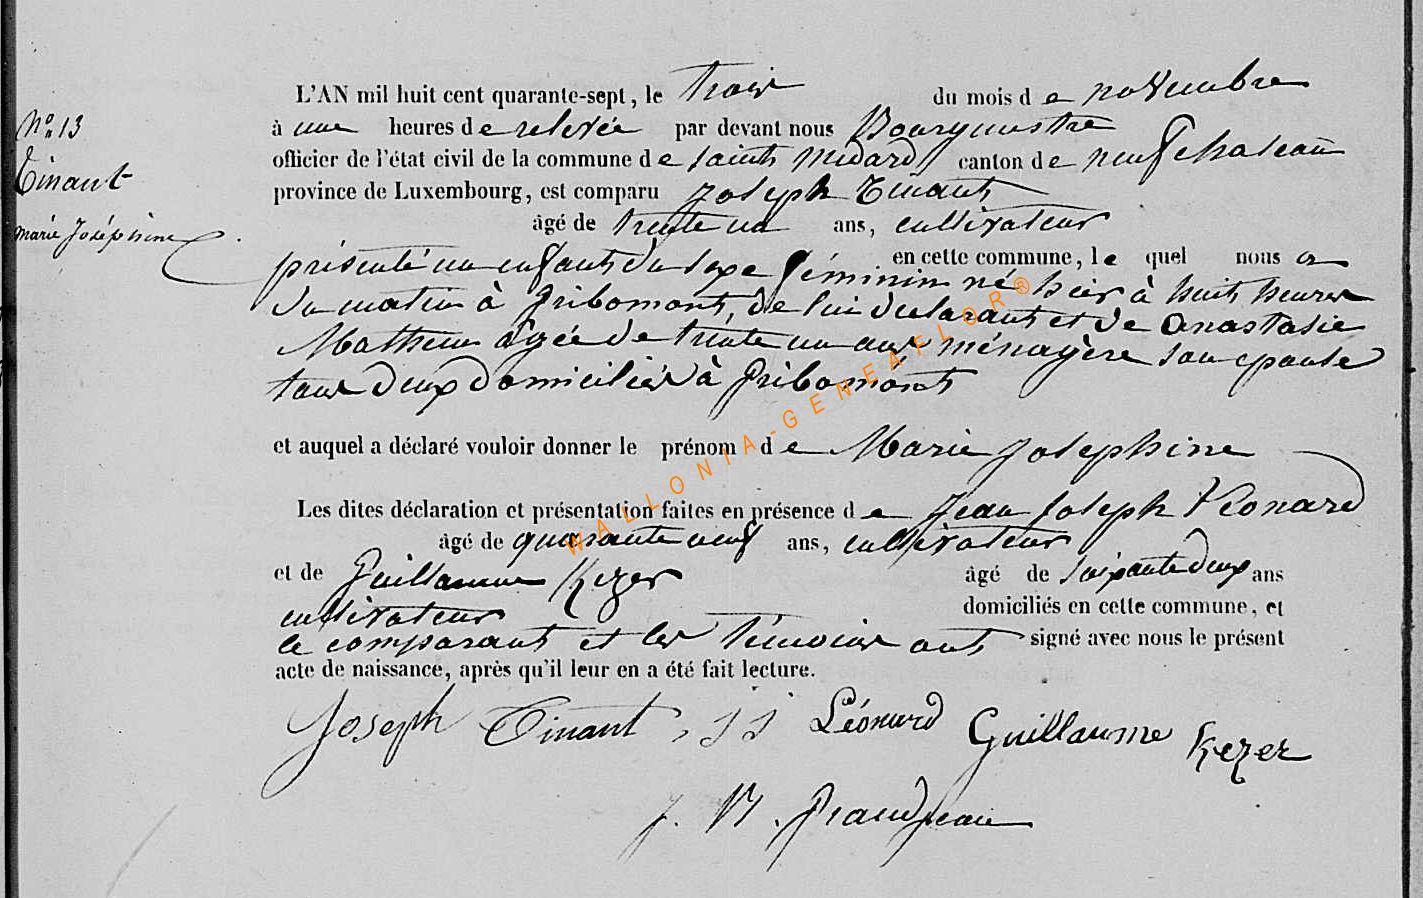 L'AN mil huit cent quarante-sept, le trois du mois de novembre
N° 13
à une heures de relevée par devant nous Bourgmestre
officier de l'état civil de la commune de saint médard canton de neufchateau
Tinant
province de Luxembourg, est comparu Joseph Tinant
marie Joséphine
âgé de trente un ans, cultivateur
en cette commune, le quel nous a
présenté un enfant du sexe féminin né hier à huit heures
du matin à gribomont, de lui déclarant et de anastasie
agée de trente un ans ménagère son epouse
tous deux domiciliés à gribomont
et auquel a déclaré vouloir donner le prénom de Marie Josephine
Les dites déclaration et présentation faites en présence de Jean Joseph Léonard
âgé de quarante neuf ans, cultivateur
et de Guillaume Kezer âgé de soixante deux ans
cultivateur domiciliés en cette commune, et
le comparant et les témoins ont signé avec nous le présent
acte de naissance, après qu'il leur en a été fait lecture.
Joseph Tinant, JJ Léonard Guillaume Kezer
WALLONIA-GENEAFLOR®